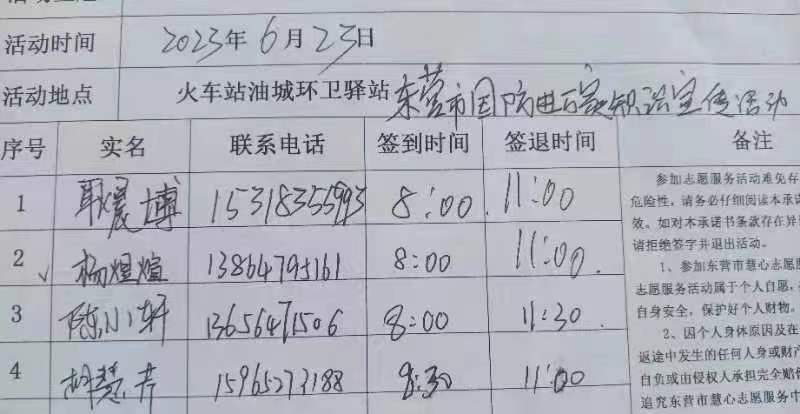 活动时间 2023年6月23日
活动地点 火车站油城环卫驿站 东营市国防电 知识宣传活动
序号 实名 联系电话 签到时间 签退时间 备注
1 耿晨博 15318355993 8:00 11:00
2 杨煜煊 13864795161 8:00 11:00
3 陈小轩 13656471506 8:00 11:30
4 胡慧芳 15965273188 8:30 11:00
参加志愿服务活动难免存
危险性，请务必仔细阅读本承诺
效。如对本承诺书条款存在异
请拒绝签字并退出活动。
1、参加东营市慧心志愿
志愿服务活动属于个人自愿，
自身安全，保护好个人财物。
2、因个人身体原因及在
返途中发生的任何人身或财产
自负或由侵权人承担完全赔偿
追究东营市慧心志愿服务中